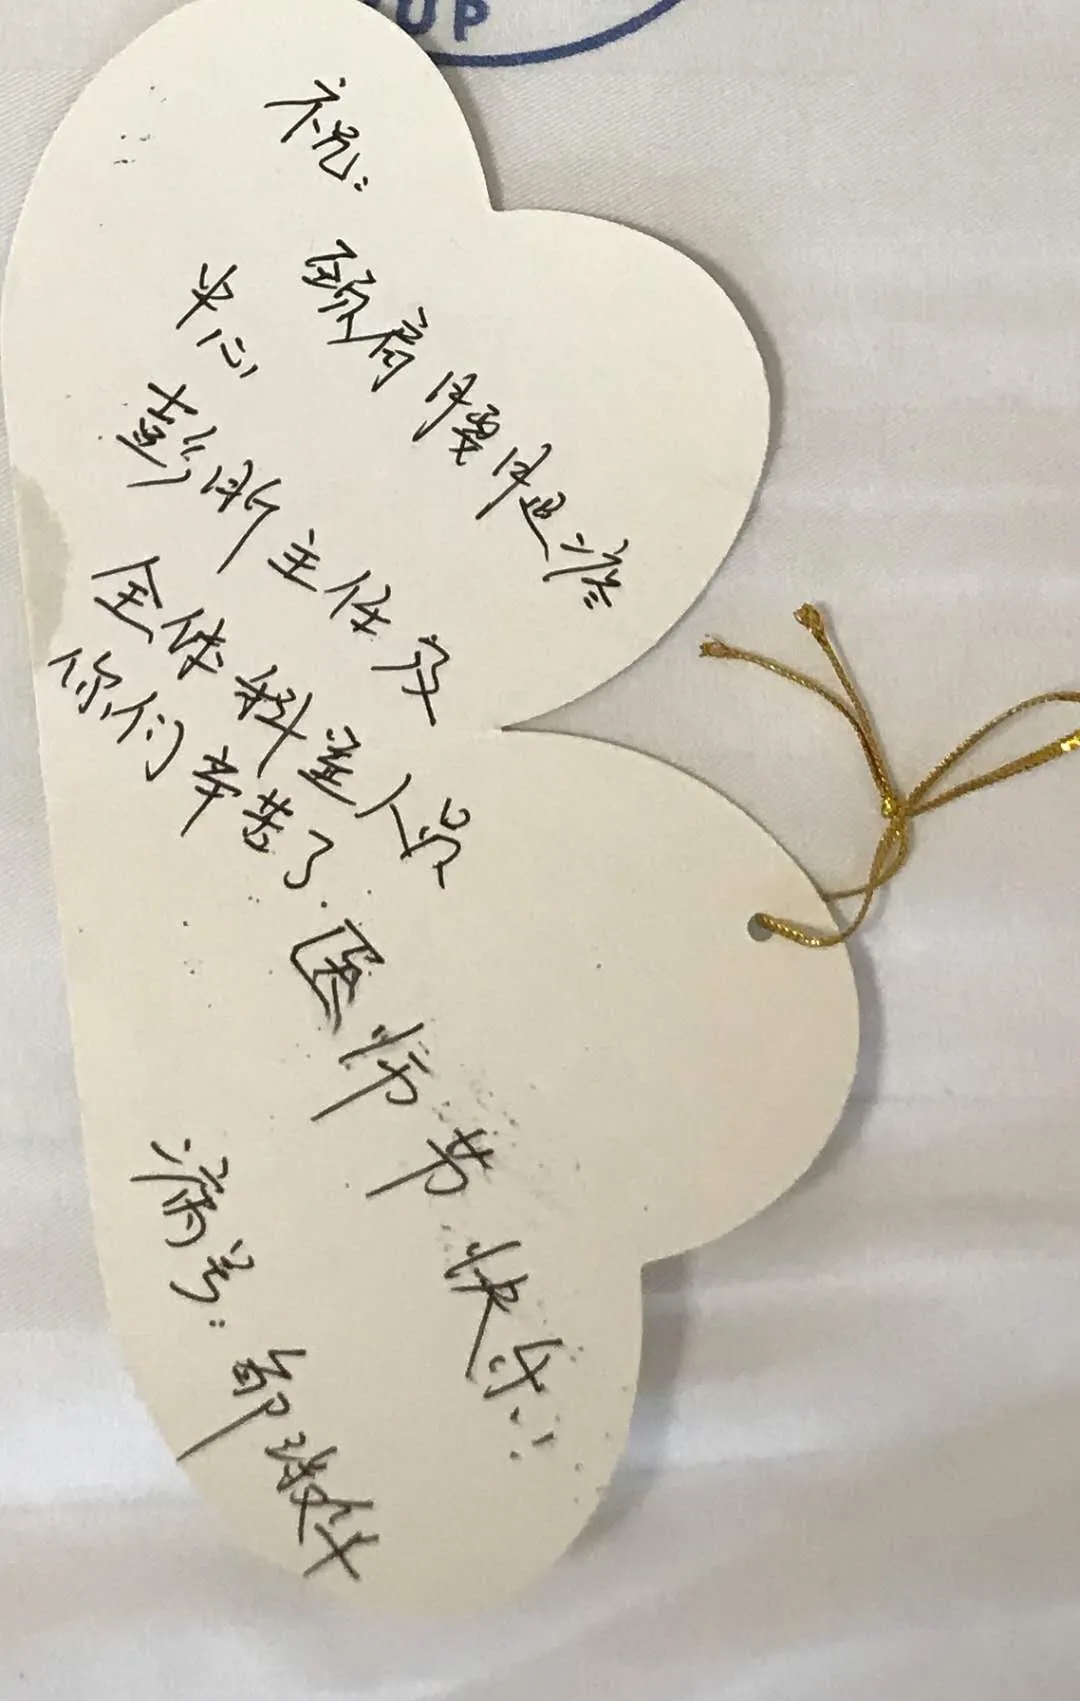 UP
祝:
颈肩腰腿疼
中心
彭 主任及
全体科室人员
你们辛苦了.
医师节快乐!!
病号: 邹